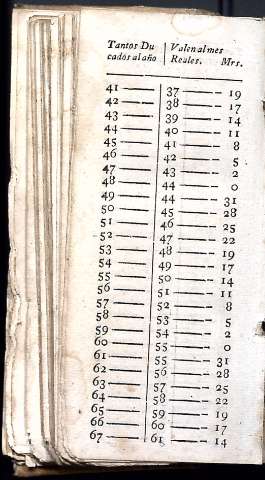 Tantos Du | Valen al mes
cados al año | Reales. Mrs.
41 —— 37 —— 19
42 —— 38 —— 17
43 —— 39 —— 14
44 —— 40 —— 11
45 —— 41 —— 8
46 —— 42 —— 5
47 —— 43 —— 2
48 —— 44 —— 0
49 —— 44 —— 31
50 —— 45 —— 28
51 —— 46 —— 25
52 —— 47 —— 22
53 —— 48 —— 19
54 —— 49 —— 17
55 —— 50 —— 14
56 —— 51 —— 11
57 —— 52 —— 8
58 —— 53 —— 5
59 —— 54 —— 2
60 —— 55 —— 0
61 —— 55 —— 31
62 —— 56 —— 28
63 —— 57 —— 25
64 —— 58 —— 22
65 —— 59 —— 19
66 —— 60 —— 17
67 —— 61 —— 14